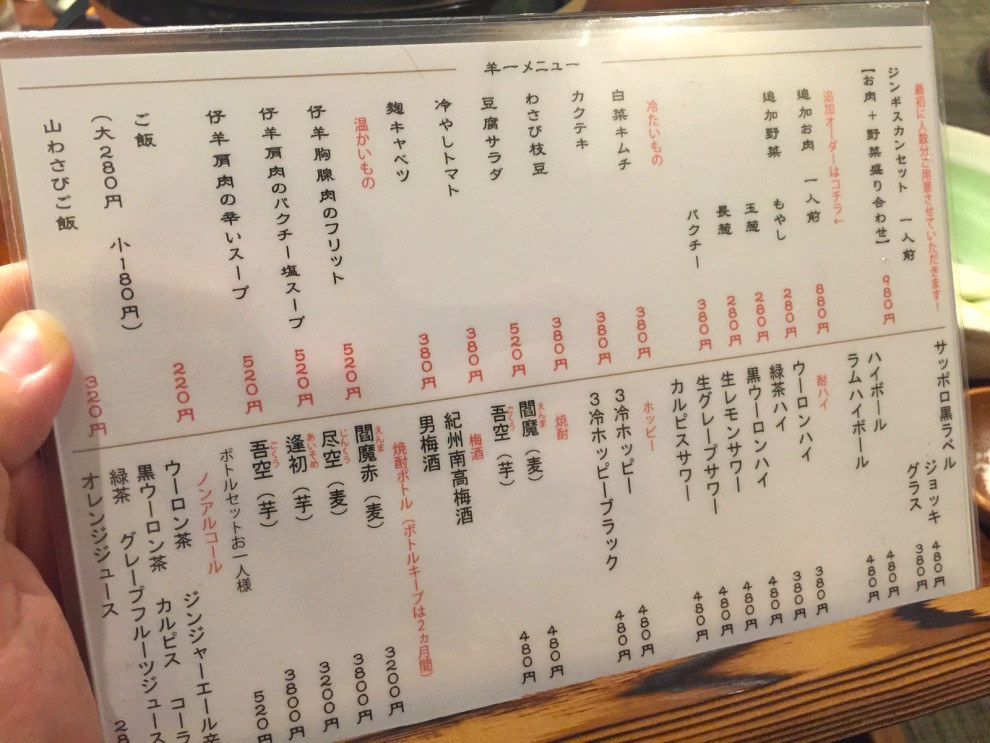 羊一メニュー
最初に人数分ご用意させていただきます!
ジンギスカンセット 一人前
【お肉+野菜盛り合わせ】 980円
追加オーダーはコチラ↓
追加お肉 一人前 880円
追加野菜 もやし 280円
玉葱 280円
長葱 280円
パクチー 380円
冷たいもの
白菜キムチ 380円
カクテキ 380円
わさび枝豆 380円
豆腐サラダ 520円
冷やしトマト 380円
麹キャベツ 380円
温かいもの
仔羊胸腺肉のフリット 520円
仔羊肩肉のパクチー塩スープ 520円
仔羊肩肉の辛いスープ 520円
ご飯 220円
(大280円 小180円)
山わさびご飯 320円
サッポロ黒ラベル ジョッキ 480円
グラス 380円
ハイボール 480円
ラムハイボール 480円
酎ハイ
ウーロンハイ 380円
緑茶ハイ 380円
黒ウーロンハイ 480円
生レモンサワー 480円
生グレープサワー 480円
カルピスサワー 480円
ホッピー
3冷ホッピー 480円
3冷ホッピーブラック 480円
焼酎
閻魔(麦) 480円
えんま
吾空(芋) 480円
ごくう
梅酒
紀州南高梅酒
男梅酒
焼酎ボトル(ボトルキープは2ヵ月間)
閻魔赤(麦) 3200円
えんま
尽空(麦) 3800円
じんくう
逢初(芋) 3200円
あいそめ
吾空(芋) 3800円
ごくう
ボトルセットお一人様 520円
ノンアルコール
ウーロン茶 ジンジャーエール
黒ウーロン茶 カルピス コーラ
緑茶 グレープフルーツジュース
オレンジジュース